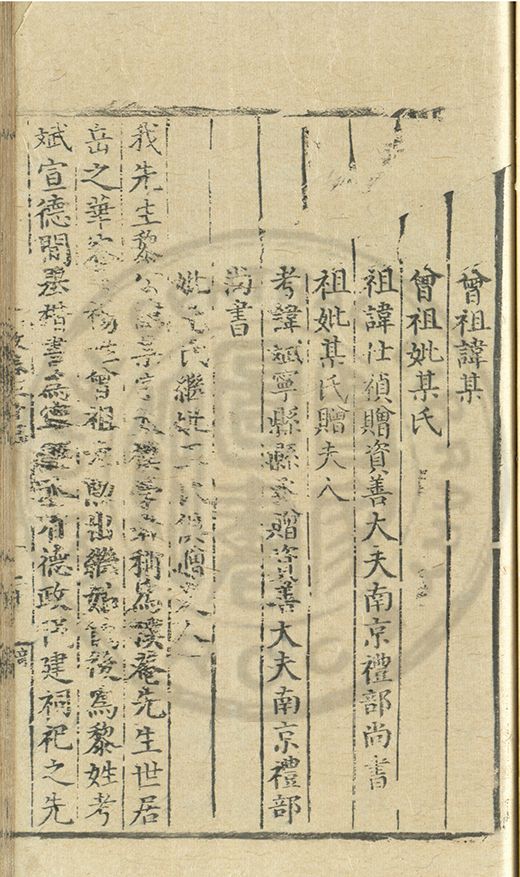 曾祖諱某
曾祖妣某氏
祖諱仕禎贈資善大夫南京禮部尚書
祖妣某氏贈夫人
考諱斌寧縣縣丞贈資善大夫南京禮部
尚書
妣氏繼妣王氏俱贈夫人
我先生黎公諱淳字太樸學者稱為樸菴先生世居
岳之華容曾祖出繼後為黎姓考
斌宣德間楷書為寧縣丞有德政民建祠祀之先